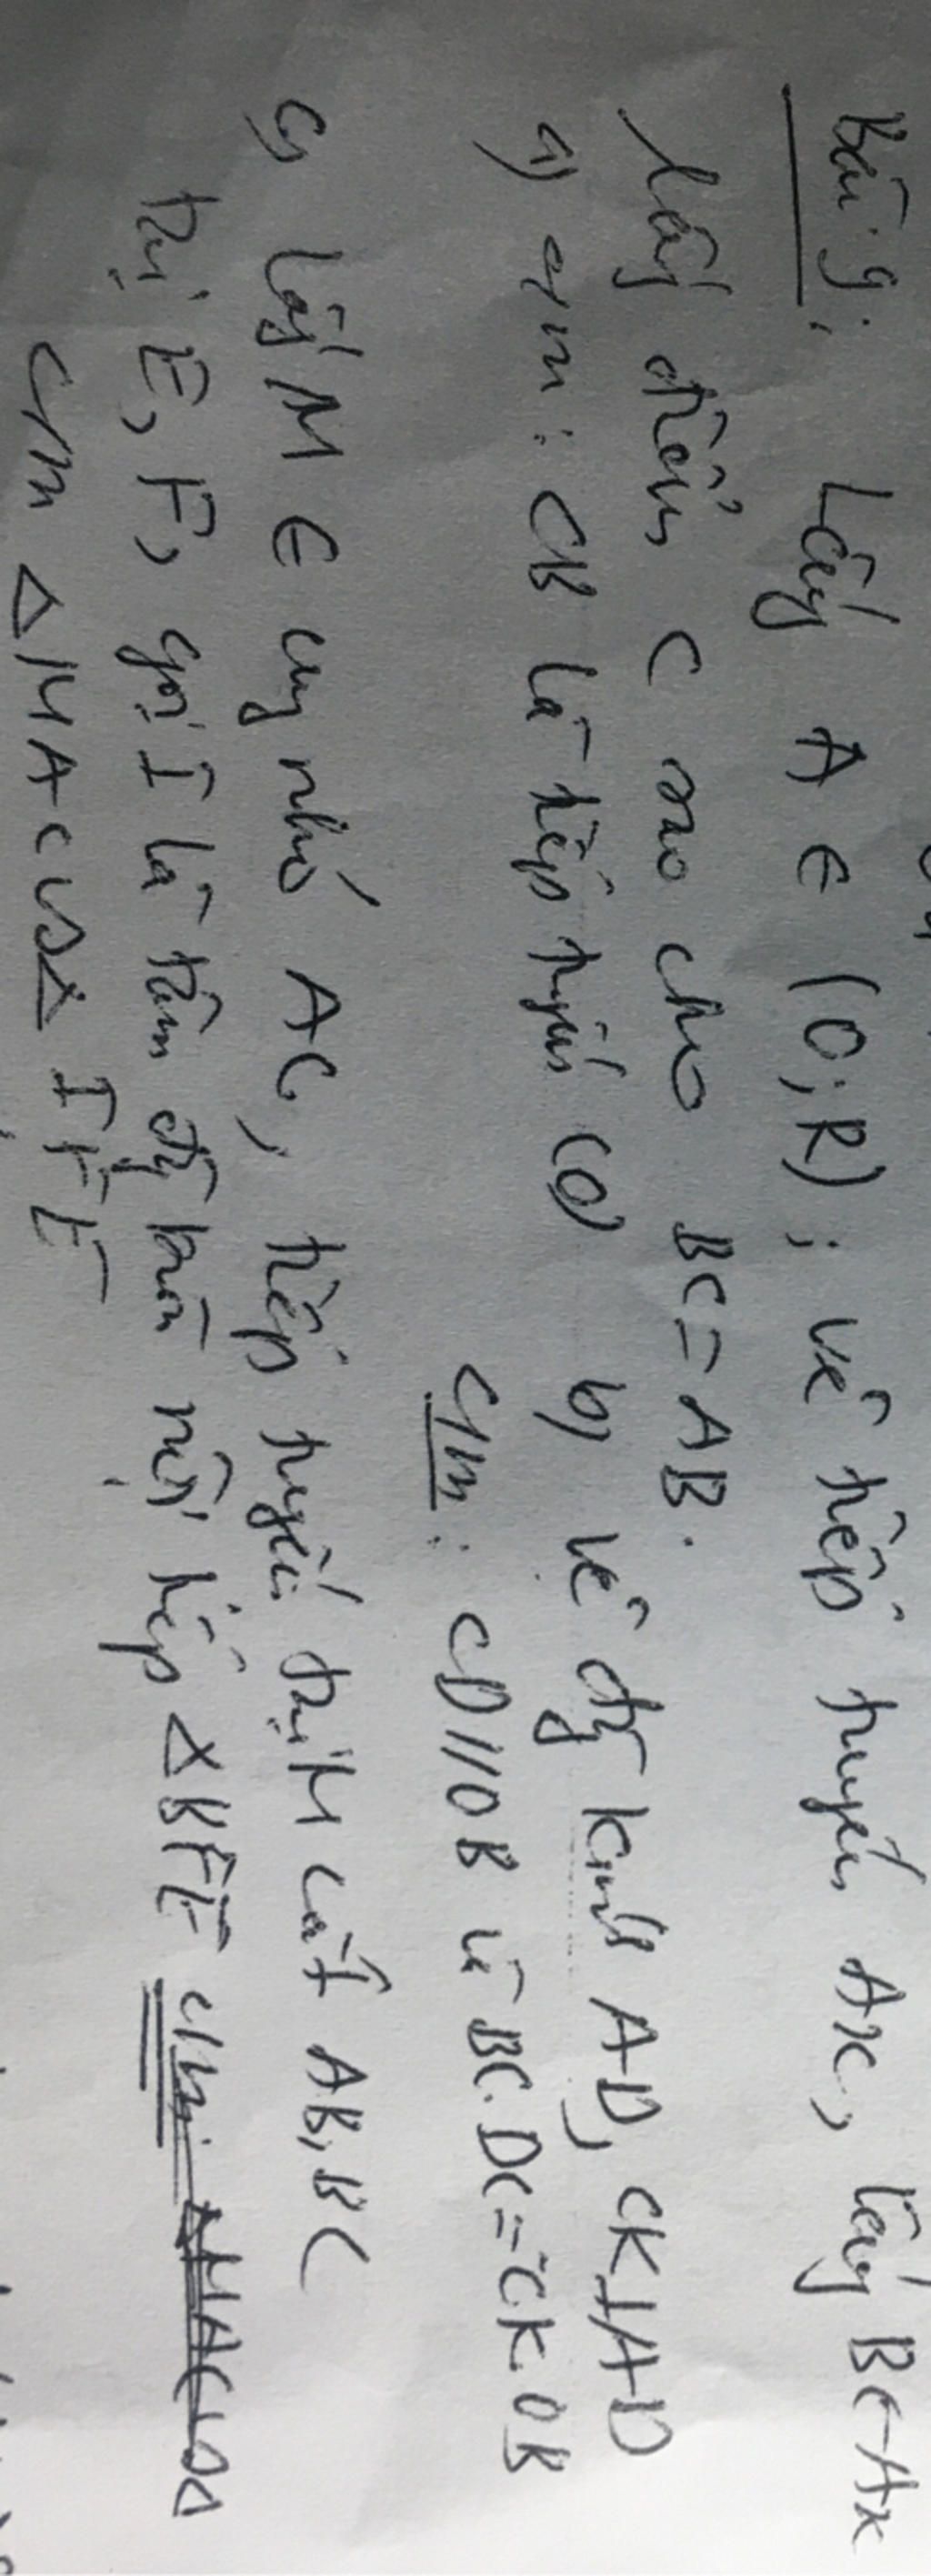 Bài 9: Lấy A ∈ (O; R); vẽ tiếp tuyến Ax, lấy B ∈ Ax
lấy điểm C sao cho BC = AB.
a) c/m: CB là tiếp tuyến (O) b) vẽ đg kính AD, CK ⊥ AD
c/m: CD // OB và BC.DC = CK.OB
c) Lấy M ∈ cung nhỏ AC, tiếp tuyến tại M cắt AB, BC
tại E, F, gọi I là tâm đg tròn nội tiếp △BFE c/m:
c/m △MAC ∽ △IFE